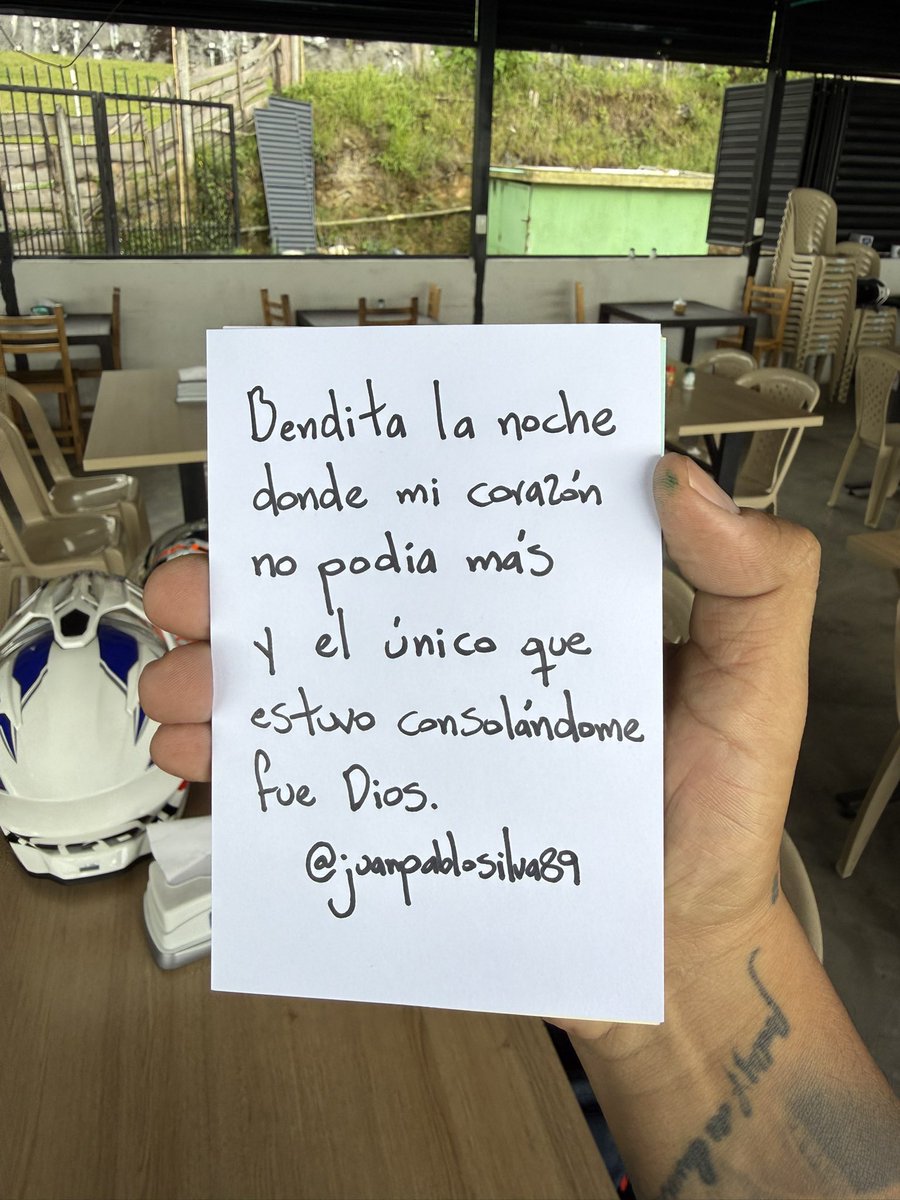 Bendita la noche
donde mi corazón
no podía más
y el único que
estuvo consolándome
fue Dios.
@juanpablosilva89